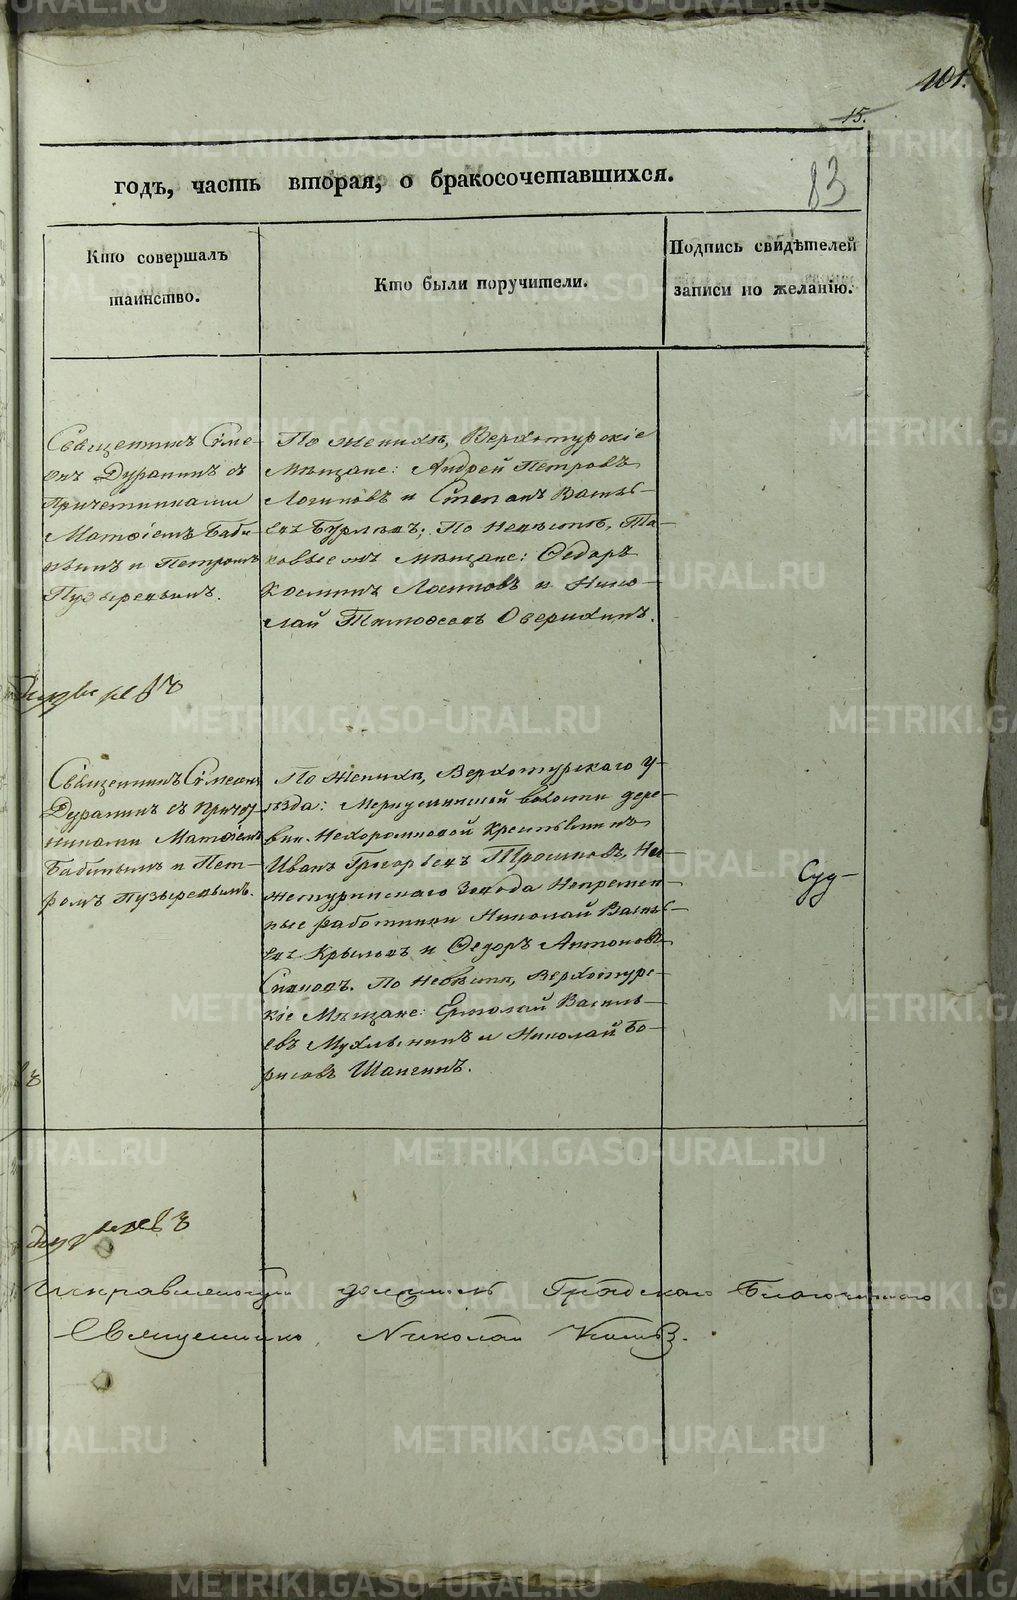 101.
15.
83
годъ, часть вторая, о бракосочетавшихся.
Кто совершалъ
таинство.
Кто были поручители.
Подпись свидѣтелей
записи по желанію.
Священникъ Сѵме-
онъ Дуранинъ съ
Причетниками
Матѳіемъ Баби-
нымъ и Петромъ
Пузыревымъ.
По женихѣ, Верхотурскіе
Мѣщане: Андрей Петровъ
Логиновъ и Степанъ Василь-
евъ Бурловъ; По Невѣстѣ, Та-
ковые жъ мѣщане: Ѳедоръ
Козминъ Логиновъ и Нико-
лай Тимоѳеевъ Оверихинъ.
Священникъ Сѵмеонъ
Дуранинъ съ Причет-
никами Матѳіемъ
Бабинымъ и Пет-
ромъ Пузыревымъ.
По Женихѣ, Верхотурскаго у-
ѣзда: Меркушинской волости дере-
вни Нехорошковой Крестьянинъ
Иванъ Григорьевъ Трошковъ, Ни-
жетуринскаго Завода Непремен-
ные работники Николай Василь-
евъ Крыловъ и Ѳедоръ Антоновъ
По Невѣстѣ, Верхотурс-
кіе Мѣщане: Ермолай Василь-
евъ Мухлынинъ и Николай Бо-
рисовъ Шангинъ.
Суд-
Исправляющій должность Градскаго Благочиннаго
Священникъ Николай
METRIKI.GASO-URAL.RU